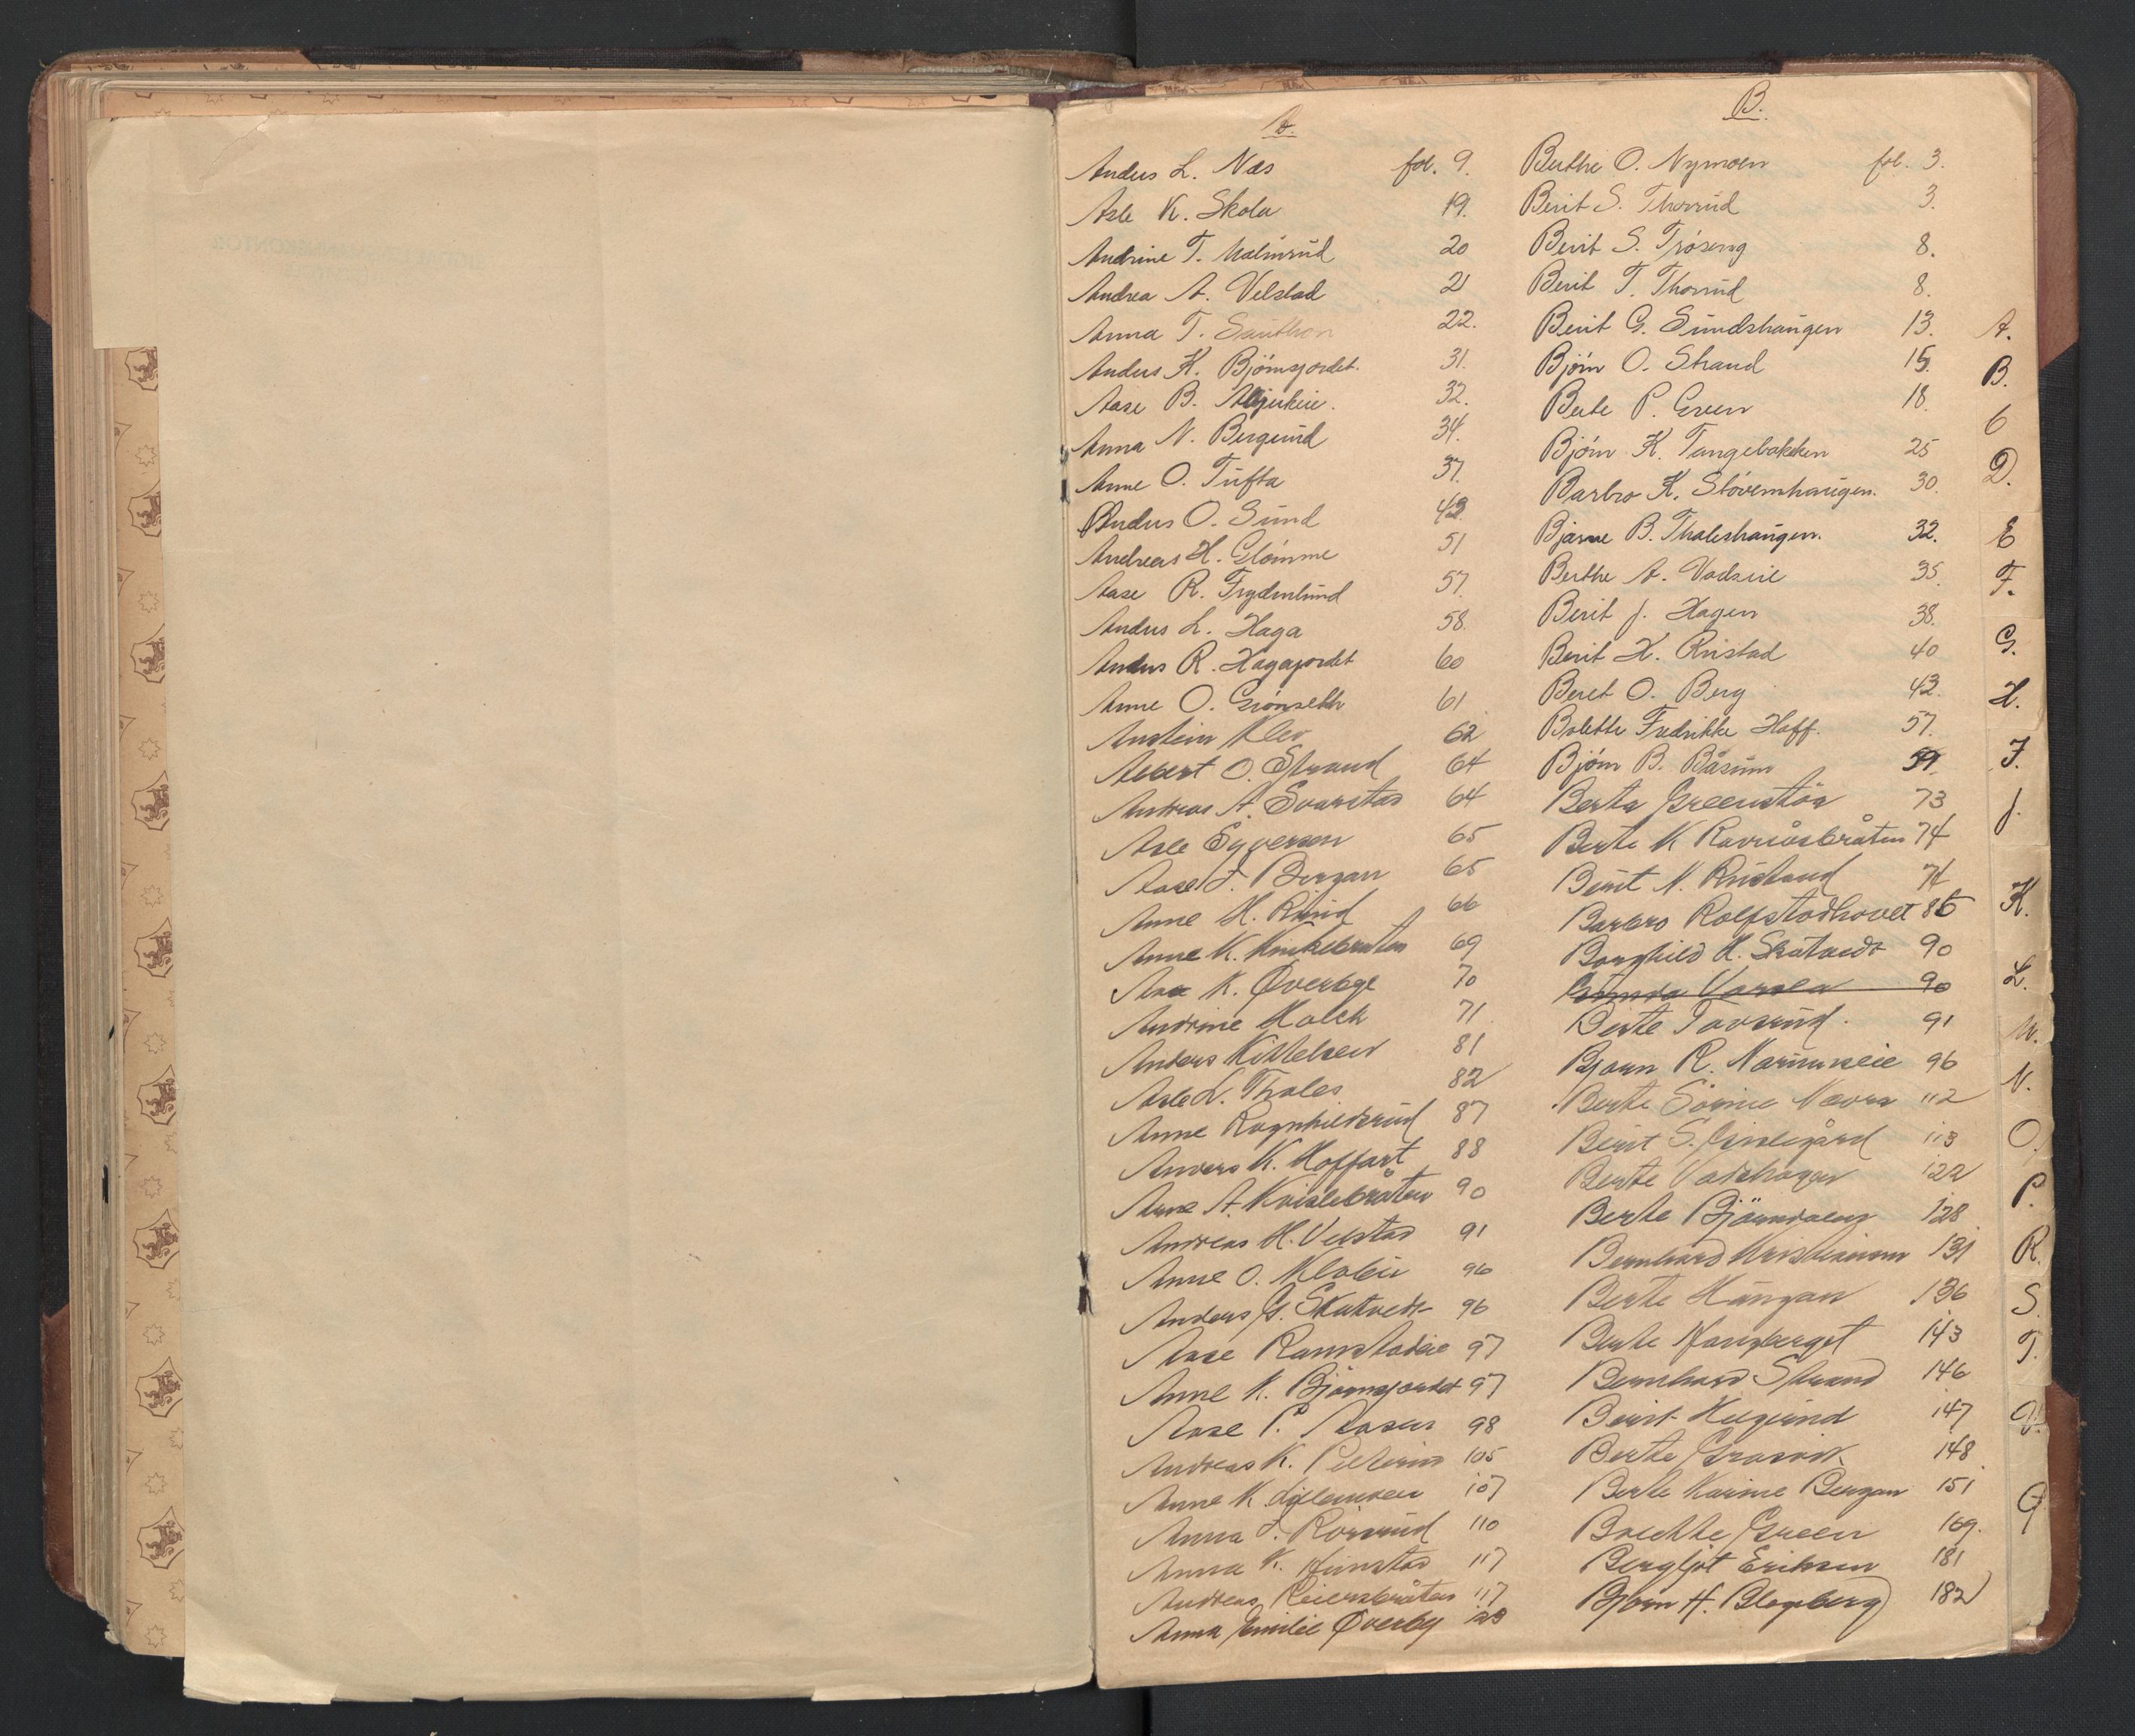 A.
Anders L. Næs fol. 9.
Asle K. Skola 19.
Andrine T. Malmrud 20
Andrea A. Velstad 21
Anna T. 22.
Anders K. Bjørnsjordet. 31.
Aase B. 32.
Anna N. Bergerud 34.
Anne O. Tufta 37.
Anders O. Sund 42
Andreas H. Glømme 51
Aase R. Frydenlund 57.
Anders L. Haga 58.
Anders R. Hagajordet 60
Anne O. Grønseth 61
Anstein Klev 62
Albert O. Strand 64
Andreas A. Evarstad 64
Asle Syversen 65
Aase T. Bergan 65
Anne H. Rund 66
Anne K. 69
Aase K. Øverbye 70
Andrine Kolch 71
Anders Kittelsen 81
Asle L. Thales 82
Anne Ragnhildsrud 87
Anders K. Hoffart 88
Anne A. Kvislebråten 90
Andreas H. Velstad 91
Anne O. Kleiv 96
Anders G. Skatvedt 96
Aase Ramstadeie 97
Anne K. Bjørnsjordet 97
Aase P. Aasen 98
Andreas K. 105
Anne K. 107
Anna J. Rørvrud 110
Anna K. 117
Andreas Reiersbråten 117
Anna Emilie Øverby
B.
Berthe O. Nymoen fol. 3.
Berit S. Thorrud 3.
Berit S. Trøseng 8.
Berit T. Thorrud 8.
Berit G. Sundshaugen 13.
Bjørn O. Strand 15.
Berte P. Green 18.
Bjørn K. Tangebakken 25
Barbro K. Støvernhaugen. 30.
Bjarne B. Thaleshaugen. 32.
Berthe A. Vadseie 35.
Berit J. Hagen 38.
Berit H. Rustad 40
Beret O. Berg 43.
Bolette Fredrikke Hoff. 57.
Bjørn B. Båsum 59
Berta Greenstøa 73
Berte K Ravnåsbråten 74
Berit N. Rustand 74
Barbro Rolfstadhovet 86
Borghild H. Skatvedt 90
Gunda 90
Berte Tovsrud. 91
Bjørn R. Narumseie 96
Berte Sørine Nævra 112
Berit S. Gislegård 113
Berte Vadshagen 122
Berte Bjørndalen 128
Bernhard Kristiansen 131
Berte Haugan 136
Berte Haugberget 143
Bernhard Strand 146
Berit Hegerud 147
Berte Grasvik 148
Berte Karine Bergan 151
Brechte Green 169.
Bergljot Eriksen 181
Bjørn H. Blegeberg 182
A.
B.
C
D.
E
F.
G.
H.
I.
J.
K.
L.
M.
N.
O.
P.
R.
S.
T.
Ø